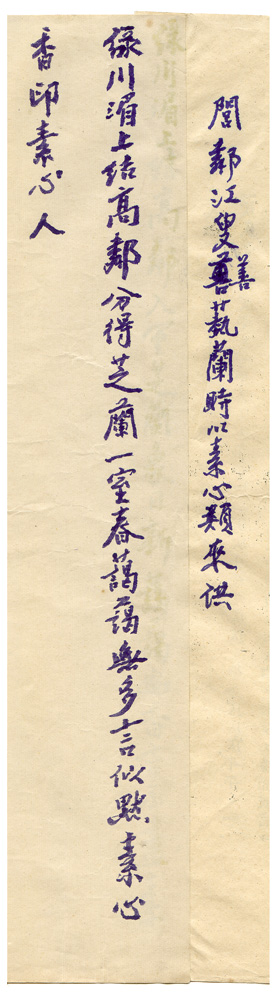 閭鄰江叟善藝蘭時以素心類來供
綠川湄上結高鄰分得芝蘭一室春藹藹無多言似默素心
香印素心人